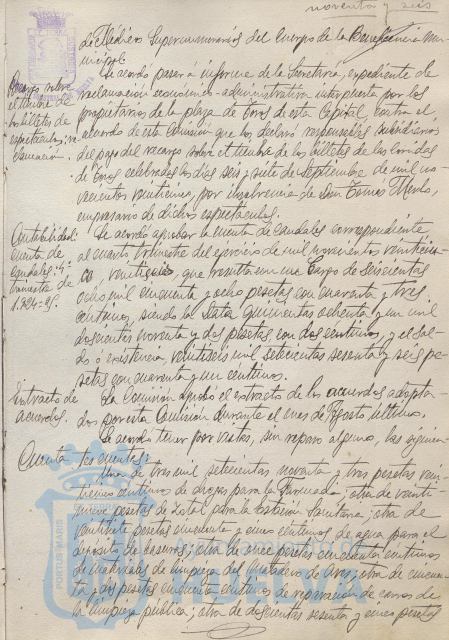 noventa y seis
de Médicos Supernumerarios del Cuerpo de la Beneficencia Mu-
nicipal.
Se acordó pasar á informe de la Secretaría, expediente de
Recargo sobre
el timbre de
los billetes de
espectáculos; re-
clamación.
reclamación económico-administrativa interpuesta por los
propietarios de la plaza de Toros de esta Capital, contra el
acuerdo de esta Comisión que los declaró responsables subsidiarios
del pago del recargo sobre el timbre de los billetes de las corridas
de Toros celebradas los días seis y siete de Septiembre de mil no-
vecientos veinticinco, por insolvencia de Don Tomás
empresario de dichos espectáculos.
Contabilidad:
cuenta de
caudales: 4º
trimestre de
1.924-25.
Se acordó aprobar la cuenta de caudales correspondiente
al cuarto trimestre del ejercicio de mil novecientos
que resulta con un Cargo de seiscientas
ocho mil cincuenta y ocho pesetas con cuarenta y tres
céntimos, siendo la Data quinientas ochenta y un mil
doscientas noventa y dos pesetas con dos céntimos, y el sal-
do ó existencia veintiseis mil setecientas sesenta y seis pe-
setas con cuarenta y un céntimos.
Extracto de
acuerdos.
La Comisión aprobó el extracto de los acuerdos adopta-
dos por esta Comisión durante el mes de Agosto último.
Se acordó tener por vistas, sin reparo alguno, las siguien-
Cuentas
tes cuentas:
Una de tres mil setecientas noventa y tres pesetas vein-
céntimos de drogas para la Farmacia; otra de veinti-
nueve pesetas de Zotal para la Estación Sanitaria; otra de
veintisiete pesetas cincuenta y cinco céntimos de agua para el
depósito de ; otra de once pesetas cincuenta céntimos
de materiales de limpieza del Matadero de ; otra de cincuen-
ta y dos pesetas cincuenta céntimos de reparación de carros de
la limpieza pública; otra de doscientas sesenta y cinco pesetas
PORTUS MARIS
HUELVA